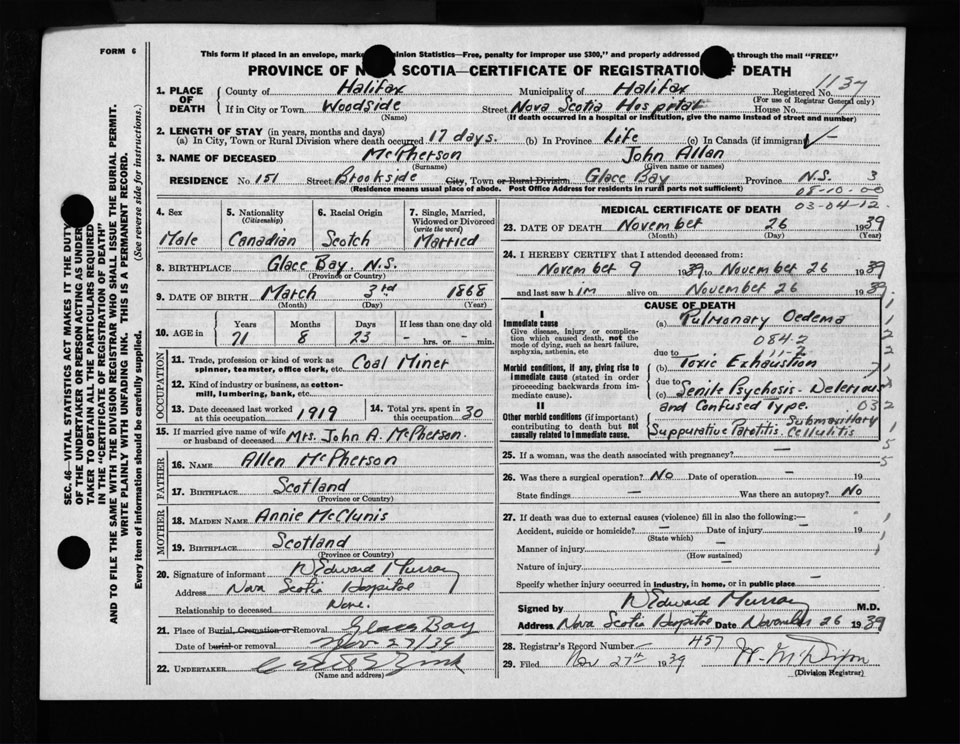 FORM 6
This form if placed in an envelope, marked Dominion Statistics—Free, penalty for improper use $300," and properly addressed passes through the mail "FREE"
PROVINCE OF NOVA SCOTIA—CERTIFICATE OF REGISTRATION OF DEATH
1. PLACE OF DEATH County of Halifax Municipality of Halifax Registered No. 1137
(For use of Registrar General only)
If in City or Town Woodside Street Nova Scotia Hospital House No.
(Name) (If death occurred in a hospital or institution, give the name instead of street and number)
2. LENGTH OF STAY (in years, months and days)
(a) In City, Town or Rural Division where death occurred 17 days. (b) In Province Life (c) In Canada (if immigrant)
3. NAME OF DECEASED McPherson John Allan
(Surname) (Given name or names)
RESIDENCE No. 151 Street Brookside City, Town or Rural Division Glace Bay Province N.S. 3
(Residence means usual place of abode. Post Office Address for residents in rural parts not sufficient)
05-10-00
03-04-12
4. Sex Male
5. Nationality (Citizenship) Canadian
6. Racial Origin Scotch
7. Single, Married, Widowed or Divorced (write the word) Married
8. BIRTHPLACE Glace Bay, N.S.
(Province or Country)
9. DATE OF BIRTH March 3rd 1868
(Month) (Day) (Year)
10. AGE in Years Months Days If less than one day old
71 8 23 - hrs. or - min.
OCCUPATION
11. Trade, profession or kind of work as spinner, teamster, office clerk, etc. Coal Miner
12. Kind of industry or business, as cotton-mill, lumbering, bank, etc.
13. Date deceased last worked at this occupation 1919 14. Total yrs. spent in this occupation 30
15. If married give name of wife or husband of deceased Mrs. John A. McPherson.
FATHER
16. NAME Allen McPherson
17. BIRTHPLACE Scotland
(Province or Country)
MOTHER
18. MAIDEN NAME Annie McClunis
19. BIRTHPLACE Scotland
(Province or Country)
20. Signature of informant W Edward Murray
Address Nova Scotia Hospital
Relationship to deceased None.
21. Place of Burial, Cremation or Removal Glace Bay
Date of burial or removal Nov 27/39
22. UNDERTAKER
(Name and address)
MEDICAL CERTIFICATE OF DEATH
23. DATE OF DEATH November 26 1939
(Month) (Day) (Year)
24. I HEREBY CERTIFY that I attended deceased from:
November 9 1939 to November 26 1939
and last saw him alive on November 26 1939
CAUSE OF DEATH
I
Immediate cause
Give disease, injury or complication which caused death, not the mode of dying, such as heart failure, asphyxia, asthenia, etc
(a) Pulmonary Oedema
084-2
11-2
due to
(b) Toxic Exhaustion
Morbid conditions, if any, giving rise to immediate cause (stated in order proceeding backwards from immediate cause).
due to
(c) Senile Psychosis - Delerious and Confused Type. 032
II
Other morbid conditions (if important) contributing to death but not causally related to immediate cause.
Submaxillary
Suppurative Parotitis. Cellulitis
25. If a woman, was the death associated with pregnancy? -
26. Was there a surgical operation? No Date of operation - 19
State findings - Was there an autopsy? No
27. If death was due to external causes (violence) fill in also the following:—
Accident, suicide or homicide? - Date of injury - 19
(State which)
Manner of injury -
(How sustained)
Nature of injury -
Specify whether injury occurred in industry, in home, or in public place -
Signed by W Edward Murray M.D.
Address Nova Scotia Hospital Date November 26 1939
28. Registrar's Record Number 457
29. Filed Nov. 27th 1939
(Division Registrar)
SEC. 46—VITAL STATISTICS ACT MAKES IT THE DUTY
OF THE UNDERTAKER OR PERSON ACTING AS UNDER-
TAKER TO OBTAIN ALL THE PARTICULARS REQUIRED
IN THE "CERTIFICATE OF REGISTRATION OF DEATH"
AND TO FILE THE SAME WITH THE DIVISION REGISTRAR WHO SHALL ISSUE THE BURIAL PERMIT.
WRITE PLAINLY WITH UNFADING INK. THIS IS A PERMANENT RECORD.
Every item of information should be carefully supplied. (See reverse side for instructions.)